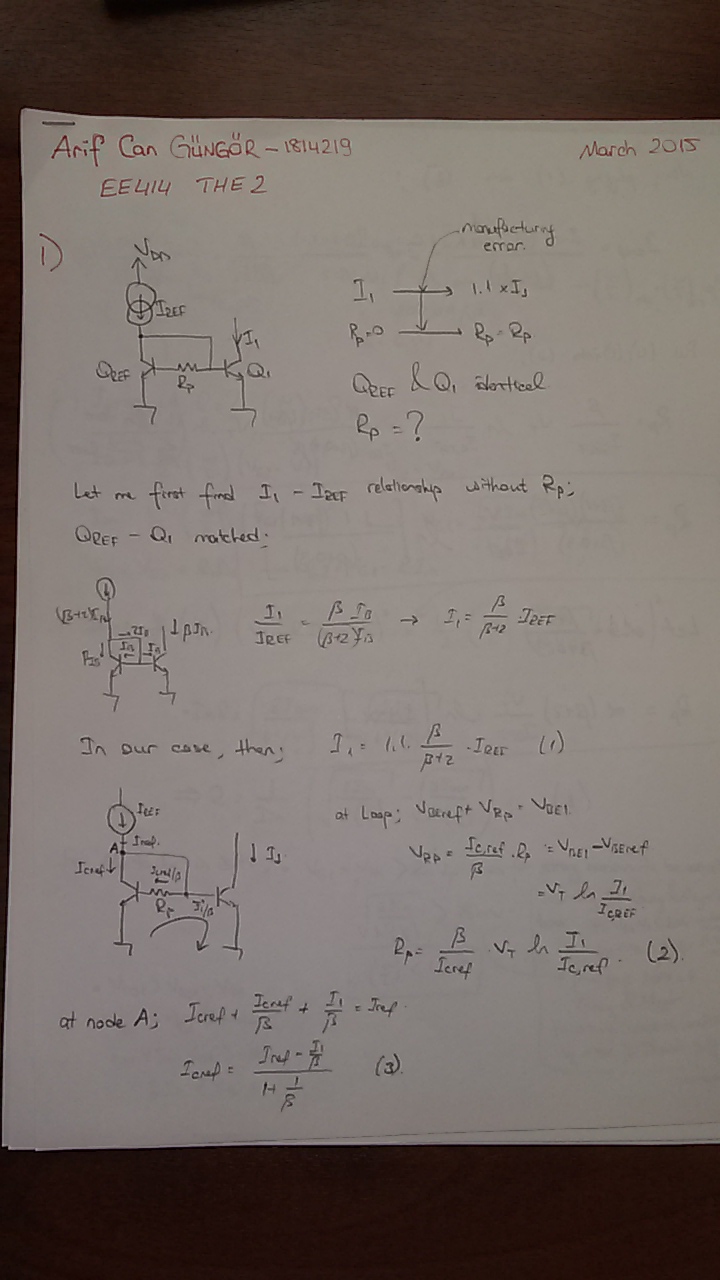 Arif Can GÜNGÖR - 1814219 March 2015
EE414 THE 2
1)
VDD
IREF
I1
QREF
Rp
Q1
manufacturing
error.
I1 → 1.1 × I1
Rp=0 → Rp = Rp
QREF & Q1 identical
Rp = ?
Let me first find I1 - IREF relationship without Rp;
QREF - Q1 matched;
(β+2)IB
2IB
↓ βIB
βIB ↓
IB
IB
I1/IREF = β IB/(β+2)IB → I1 = β/β+2 IREF
In our case, then; I1 = 1.1. β/β+2 . IREF (1)
IREF
A
Iref
Icref ↓
Icref/β
Rp
I1/β
↓ I1
at Loop; VBEref + VRp = VBE1
VRp = Ic,ref/β . Rp = VBE1 - VBEref
= VT ln I1/IC,REF
Rp = β/Icref . VT ln I1/Ic,ref . (2).
at node A; Icref + Icref/β + I1/β = Iref.
Icref = Iref - I1/β / 1+ 1/β (3).